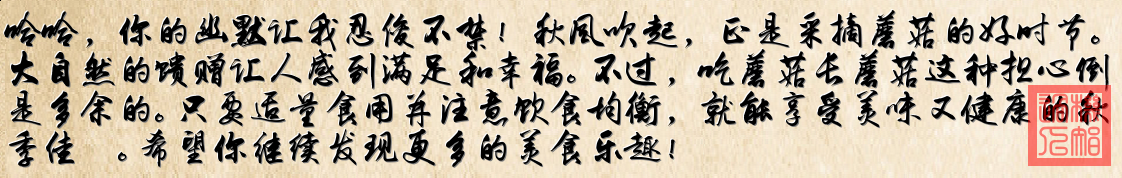 哈哈，你的幽默让我忍俊不禁！秋风吹起，正是采摘蘑菇的好时节。
大自然的馈赠让人感到满足和幸福。不过，吃蘑菇长蘑菇这种担心倒
是多余的。只要适量食用并注意饮食均衡，就能享受美味又健康的秋
季佳 。希望你继续发现更多的美食乐趣！